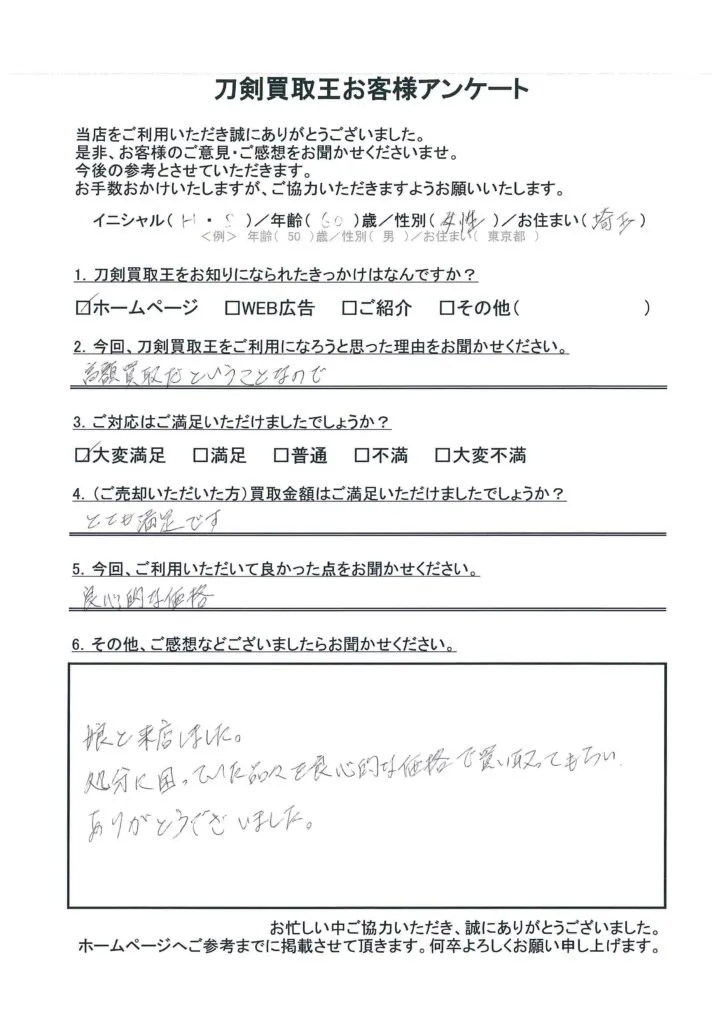 刀剣買取王お客様アンケート
当店をご利用いただき誠にありがとうございました。
是非、お客様のご意見・ご感想をお聞かせくださいませ。
今後の参考とさせていただきます。
お手数おかけいたしますが、ご協力いただきますようお願いいたします。
イニシャル( H ・ S )／年齢( 60 )歳／性別( 女性 )／お住まい( 埼玉 )
＜例＞ 年齢( 50 )歳／性別( 男 )／お住まい( 東京都 )
1. 刀剣買取王をお知りになられたきっかけはなんですか？
☑ホームページ □WEB広告 □ご紹介 □その他( )
2. 今回、刀剣買取王をご利用になろうと思った理由をお聞かせください。
高額買取だということなので
3. ご対応はご満足いただけましたでしょうか？
☑大変満足 □満足 □普通 □不満 □大変不満
4. (ご売却いただいた方)買取金額はご満足いただけましたでしょうか？
とても満足です
5. 今回、ご利用いただいて良かった点をお聞かせください。
良心的な価格
6. その他、ご感想などございましたらお聞かせください。
娘と来店しました。
処分に困っていた品々を良心的な価格で買い取ってもらい
ありがとうございました。
お忙しい中ご協力いただき、誠にありがとうございました。
ホームページへご参考までに掲載させて頂きます。何卒よろしくお願い申し上げます。